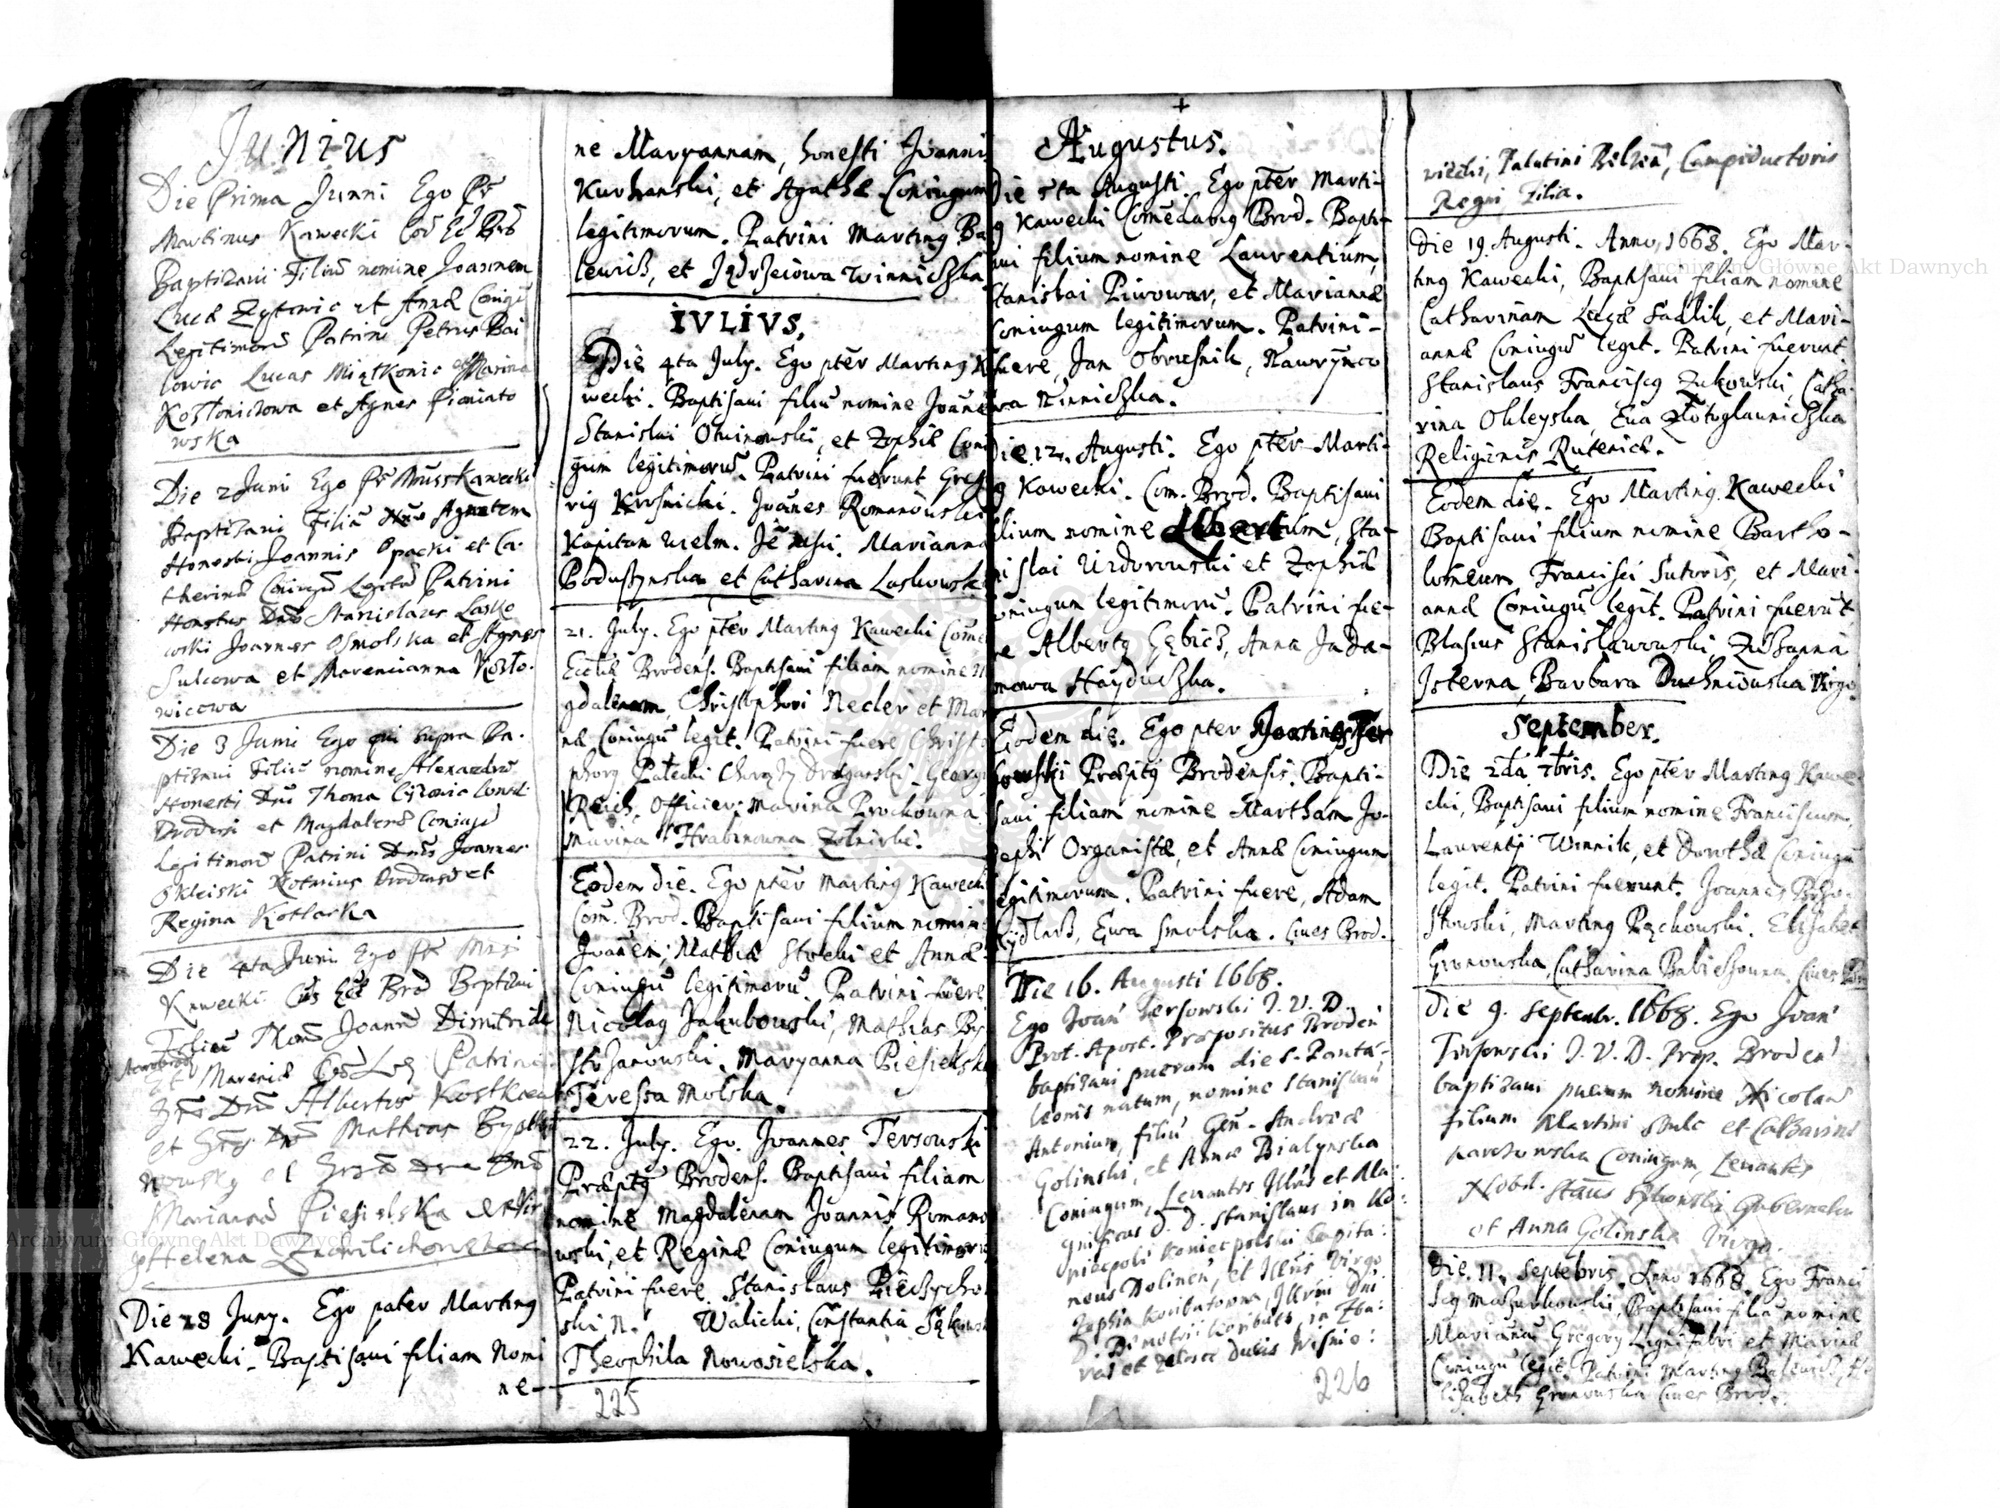 Junius
Die Prima Junni Ego Pr
Martinus Kawecki Coo Ecl Bro
Baptizaui Filiu nomine Joannem
Lucæ Zytowic et Annæ Conigu
Legitimoru Patrini Petrus Bai
lowic Lucas Miątkonic et Marina
Kozlonichowa et Agnes Pioniato
wska
Die 2 Juni Ego Pr Mnus Kawecki
Baptizaui Filiu Agnetem
Honesti Joannis Opacki et Ca-
therinæ Coniugu Legitu Patrini
Honstus Dns Stanislaus Lasko
wski Joannes Osmolska et Agnes
Sulcowa et Marencianna Kozlo-
wicowa
Die 3 Juni Ego qui supra Ba-
ptizaui Filiu nomine Alexandru
Honesti Dni Thoma
Brodensi et Magdalenæ Coniugu
Legitimoru Patrini Dnus Joannes
Okleiski Notarius Brodensis et
Regina Kotlarka
Die 4ta Juni Ego Pr
Kawecki Brod Baptizaui
Filiu Joannæ Dimitride
et Patrini
Albertus Kostkiew
et Mathias Bystrza
nowsky et
Marianna Piesielska et Vir
Helena
Die 28 Juny. Ego pater Marting
Kawecki. Baptisaui filiam Nomi
ne-
ne Maryannam, honesti Joannis
Kurhanski, et Agathæ Coniugum
legitimorum. Patrini Marting Ba
lewicz, et Jędrzeiowa Winniczka
IVLIVS.
Die 4ta July. Ego pter Marting Ka
wecki. Baptisaui filiu nomine Joane
Stanislai Otwinowski, et Zophiæ Coni
gum legitimoru. Patrini fuerunt Grego
rig Krosnicki. Joanes Romanowski
Kapitan Marianna
Bodustynska et Catharina Laskowska
21. July. Ego pter Marting Kawecki Come
Ecclæ Brodens. Baptisaui filiam nomine M
gdalenam, Christophori Necler et Mar
næ Coniugu legit. Patrini fuere Christo
phorg Patecki Chorąży Dragański. Georgi
Reich, Officier: Marina Brockowna
Marina Hrabinowna Zolnirki.
Eodem die. Ego pter Marting Kaweck
Com. Brod. Baptisaui filium nomin
Joanem; Mathiæ Stocki et Annæ
Coniugu legitimoru. Patrini fuere
Nicolag Jakubowski, Mathias By
strzanowski. Maryanna Piesielska
Teressa Molska.
22. July. Ego Joannes Tersowski
Præptg Brodens. Baptisaui filiam
nomine Magdalenam Joannis Romano
wski, et Reginæ Coniugum legitimoru
Patrini fuere. Stanislaus Piećzycho
ski N. Walicki, Constantia
Theophila Nowosielska.
225
Augustus.
Die 5ta Augusti. Ego pter Marti-
g Kawecki Comedarig Brod. Bapti-
ui filium nomine Laurentium,
tanislai Piwowar, et Mariannæ
Coniugum legitimorum. Patrini-
fuere, Jan Obrusnik, Nawrynco
wa Winniczka.
Die 12. Augusti. Ego pter Marti-
g Kawecki. Com. Brod. Baptisaui
lium nomine Albertum, Sta-
nislai Widorowski et Zophiæ
oniugum legitimoru. Patrini fue-
re Albertg Gębicz, Anna Jada-
mowa Hayduczka.
Eodem die. Ego pter Joanes Ter
sowski Præptg Brodensis. Bapti-
saui filiam nomine Martham Jo-
sephi Organistæ, et Annæ Coniugum
legitimorum. Patrini fuere, Adam
Ewa Smolska. Ciues Brod.
Die 16. Augusti 1668.
Ego Joan Tersowski J. V. D.
Prot. Apost. Præpositus Broden
baptizaui puerum die S. Panta-
leonis natum, nomine Stanislau
Antonium, filiu Gen. Andreæ
Golinski, et Annæ Bialynska
Coniugum, Leuantes Illus et Ma:
gnificus D. D. Stanislaus in Ko:
niecpoli Koniecpolski Capita:
neus Dolinen, et Illus Virgo
Zophia Koributowna, Illrmi Dni
D. Dimitrii Koributh, in Zba:
raz et Zalosce Ducis Wisnio:
226
wiecki, Palatini Belzen, Campiductoris
Regni Filia.
Die 19. Augusti. Anno, 1668. Ego Mar-
ting Kawecki, Baptisaui filiam nomine
Catharinam Lucæ Sadlik, et Mari-
annæ Coniugu legit. Patrini fuerunt
Stanislaus Franciscg Zukowski, Catha-
rina Okleyska, Eua Złotogławniczka
Religionis Rutenicæ.
Eodem die. Ego Marting Kawecki
Baptisaui filium nomine Bartho-
lomeum Francisci Sutoris, et Mari-
annæ Coniugu legit. Patrini fuerut
Blasius Stanislawowski, Zuzanna
Isterna, Barbara Duchniowska Virgo.
September.
Die 2da 7bris. Ego pter Marting Kawe
cki, Baptisaui filium nomine Franciscum,
Laurentij Winnik, et Dorothæ Coniugu
legit. Patrini fuerunt. Joannes Brzo-
stowski, Marting Pączkowski. Elisabet
Gronowska, Catharina Babiczowna Ciues Bro
Die 9. Septembr. 1668. Ego Joan
Tersowski J. V. D. Præp. Broden
baptizaui puerum nomine Nicolau
filium Martini Sulc et Catharinæ
Parchowska Coniugum, Leuantes
Nobil. Staus Gubernator
et Anna Golinska Virgo.
Die 11. Septebris. Anno 1668. Ego Franci
scg Mazurkowski, Baptisaui filia nomine
Mariana Gregory Lignifabri et Marinæ
Coniugu legit. Patrini Marting Balewicz, E
lisabeth Gronowska Ciues Brod.
Archiwum Główne Akt Dawnych
Archiwum Główne Akt Dawnych